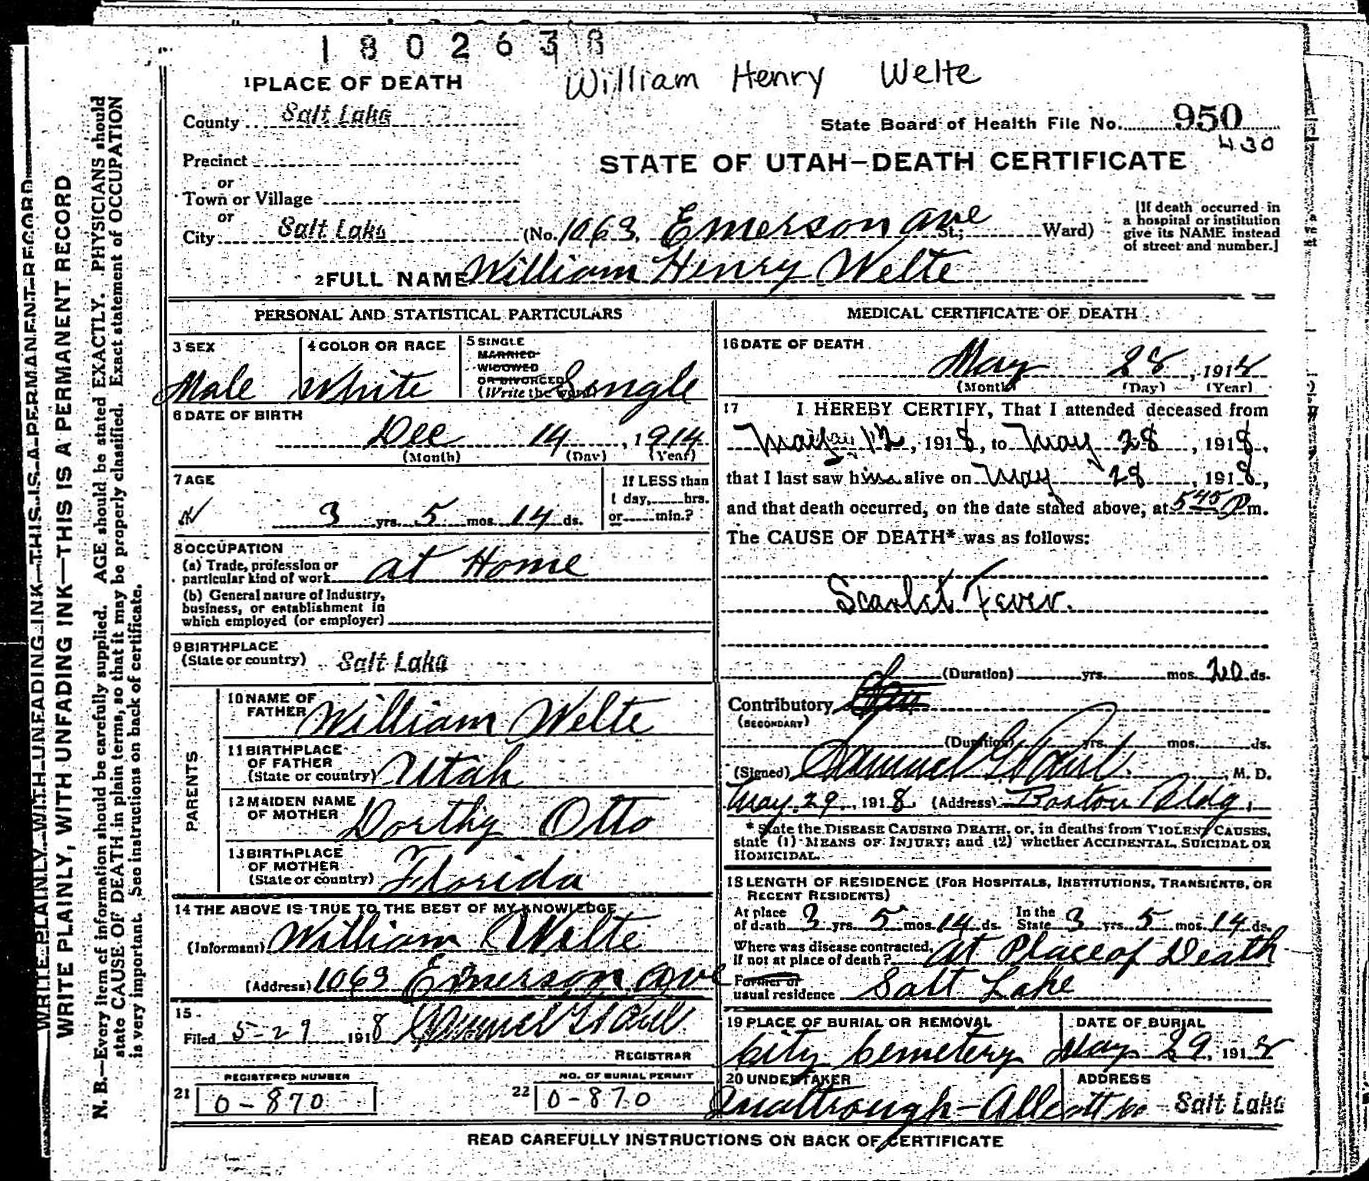 1802638
William Henry Welte
1 PLACE OF DEATH
County Salt Lake
State Board of Health File No. 950
430
Precinct
or
Town or Village
or
City Salt Lake
STATE OF UTAH—DEATH CERTIFICATE
(No. 1063. Emerson ave St.; Ward)
[If death occurred in
a hospital or institution
give its NAME instead
of street and number.]
2 FULL NAME William Henry Welte
PERSONAL AND STATISTICAL PARTICULARS
3 SEX
Male
4 COLOR OR RACE
White
5 SINGLE
MARRIED
WIDOWED
OR DIVORCED
(Write the word) Single
6 DATE OF BIRTH
Dec 14, 1914
(Month) (Day) (Year)
7 AGE
3 yrs. 5 mos. 14 ds.
If LESS than
1 day, hrs.
or min.?
8 OCCUPATION
(a) Trade, profession or
particular kind of work at Home
(b) General nature of Industry,
business, or establishment in
which employed (or employer)
9 BIRTHPLACE
(State or country) Salt Lake
PARENTS
10 NAME OF
FATHER William Welte
11 BIRTHPLACE
OF FATHER
(State or country) Utah
12 MAIDEN NAME
OF MOTHER Dorthy Otto
13 BIRTHPLACE
OF MOTHER
(State or country) Florida
14 THE ABOVE IS TRUE TO THE BEST OF MY KNOWLEDGE
(Informant) William Welte
(Address) 1063 Emerson ave
15
Filed 5-29 1918 Samuel G Paul
REGISTRAR
REGISTERED NUMBER
21 0-870
NO. OF BURIAL PERMIT
22 0-870
MEDICAL CERTIFICATE OF DEATH
16 DATE OF DEATH
May 28, 1918
(Month) (Day) (Year)
17 I HEREBY CERTIFY, That I attended deceased from
May 12, 1918, to May 28, 1918,
that I last saw him alive on May 28, 1918,
and that death occurred, on the date stated above, at 5 45 P m.
The CAUSE OF DEATH* was as follows:
Scarlet Fever.
(Duration) yrs. mos. 20 ds.
Contributory
(SECONDARY)
(Duration) yrs. mos. ds.
(Signed) Samuel G Paul. M. D.
May 29, 1918. (Address) Boston Bldg.
* State the DISEASE CAUSING DEATH, or, in deaths from VIOLENT CAUSES,
state (1) MEANS OF INJURY; and (2) whether ACCIDENTAL, SUICIDAL OR
HOMICIDAL.
18 LENGTH OF RESIDENCE (FOR HOSPITALS, INSTITUTIONS, TRANSIENTS, OR
RECENT RESIDENTS)
At place
of death 3 yrs. 5 mos. 14 ds. In the
State 3 yrs. 5 mos. 14 ds.
Where was disease contracted,
if not at place of death? at Place of Death
Former or
usual residence Salt Lake
19 PLACE OF BURIAL OR REMOVAL
City Cemetery
DATE OF BURIAL
May 29, 1918
20 UNDERTAKER
Qualtrough-Allcott co
ADDRESS
Salt Lake
READ CAREFULLY INSTRUCTIONS ON BACK OF CERTIFICATE
WRITE PLAINLY WITH UNFADING INK—THIS IS A PERMANENT RECORD
WRITE PLAINLY, WITH UNFADING INK—THIS IS A PERMANENT RECORD
N. B.—Every item of information should be carefully supplied. AGE should be stated EXACTLY. PHYSICIANS should
state CAUSE OF DEATH in plain terms, so that it may be properly classified. Exact statement of OCCUPATION
is very important. See instructions on back of certificate.